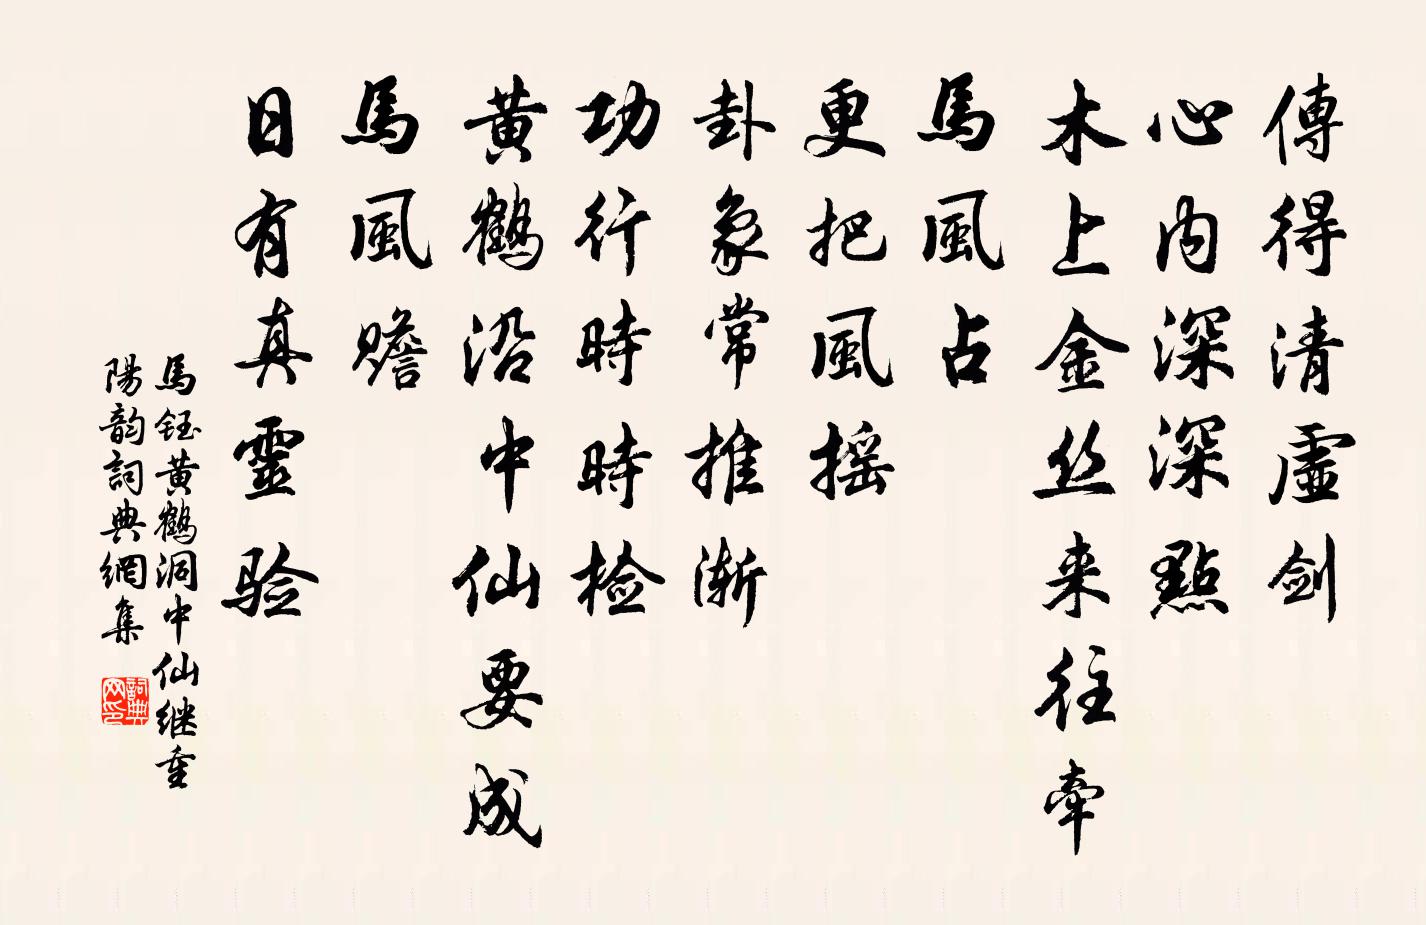 傳得清虛剑
心内深深點
木上金丝来往牽
馬風占
更把風摇
卦象常推渐
功行時時检
黄鶴沿中仙要成
馬風赡
日有真靈验
馬鈺黄鶴洞中仙继重
陽韵詞典網集
詞典网印